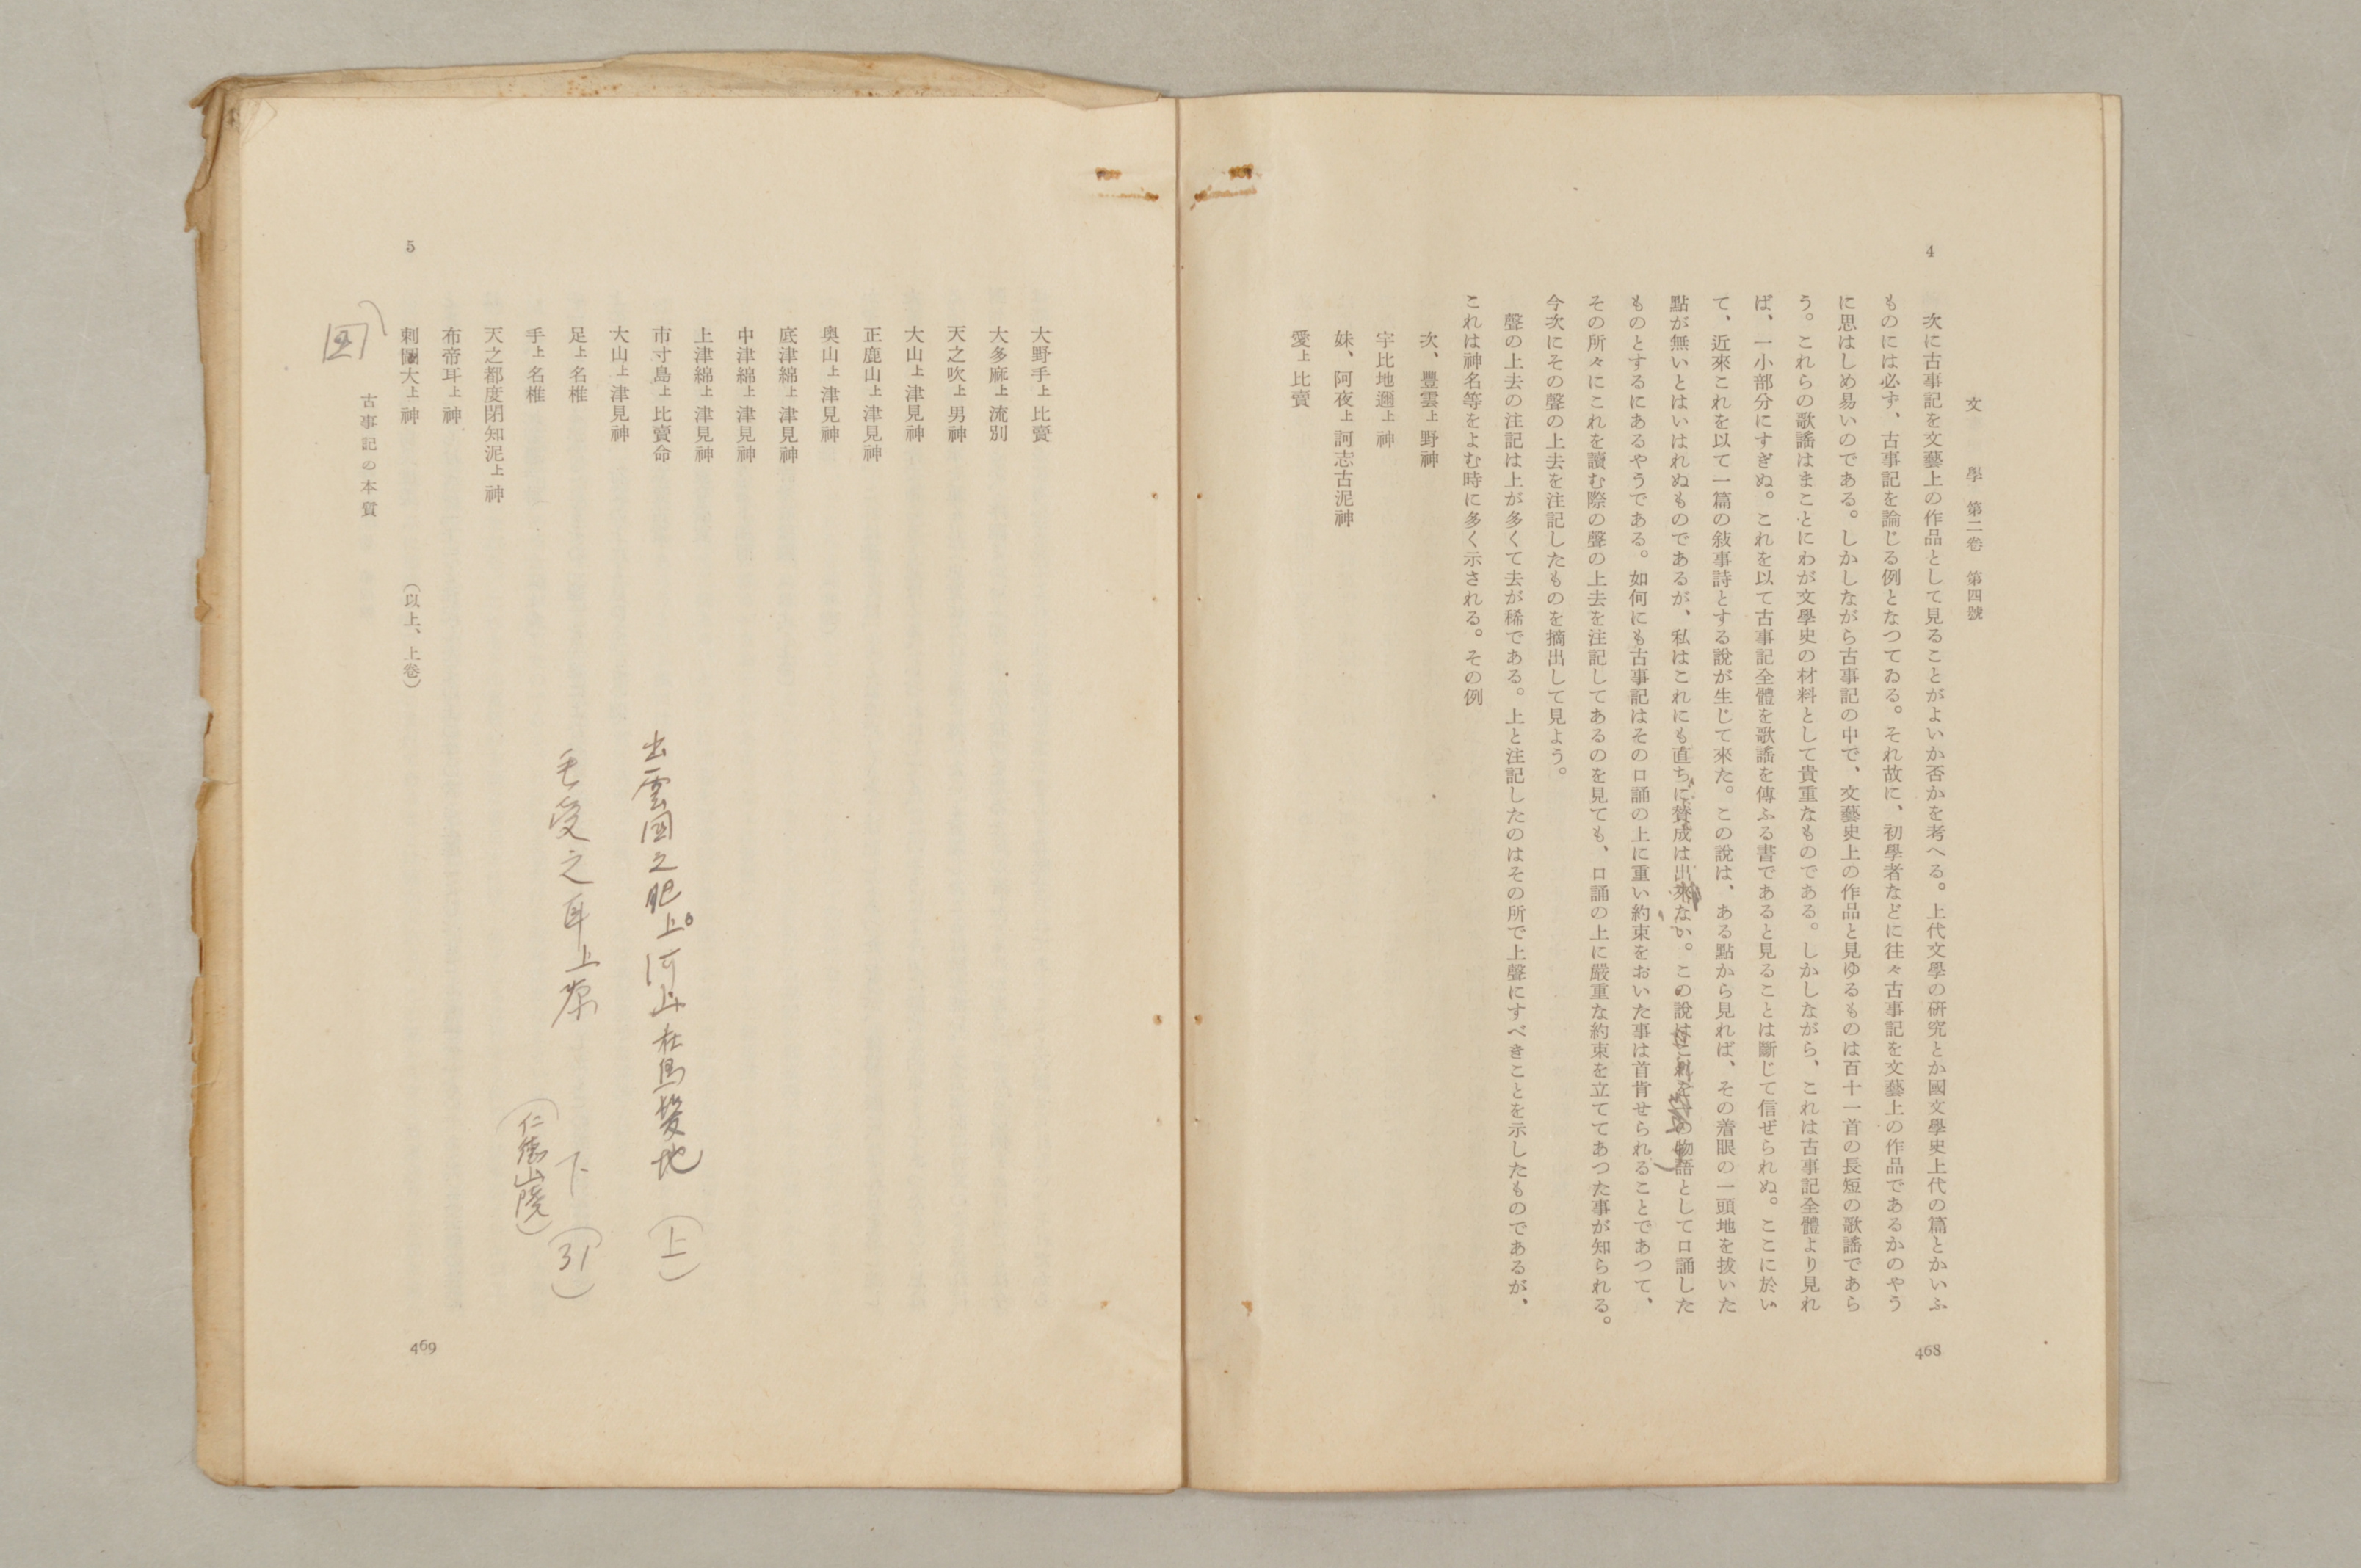 4
文學 第二卷 第四號
次に古事記を文藝上の作品として見ることがよいか否かを考へる。上代文學の研究とか國文學史上代の篇とかいふ
ものには必ず、古事記を論じる例となつてゐる。それ故に、初學者などに往々古事記を文藝上の作品であるかのやう
に思はしめ易いのである。しかしながら古事記の中で、文藝史上の作品と見ゆるものは百十一首の長短の歌謠であら
う。これらの歌謠はまことにわが文學史の材料として貴重なものである。しかしながら、これは古事記全體より見れ
ば、一小部分にすぎぬ。これを以て古事記全體を歌謠を傳ふる書であると見ることは斷じて信ぜられぬ。ここに於い
て、近來これを以て一篇の敍事詩とする說が生じて來た。この說は、ある點から見れば、その着眼の一頭地を拔いた
點が無いとはいはれぬものであるが、私はこれにも直ちに賛成は出來ない。この說はこれを物語として口誦した
ものとするにあるやうである。如何にも古事記はその口誦の上に重い約束をおいた事は首肯せられることであつて、
その所々にこれを讀む際の聲の上去を注記してあるのを見ても、口誦の上に嚴重な約束を立ててあつた事が知られる。
今次にその聲の上去を注記したものを摘出して見よう。
聲の上去の注記は上が多くて去が稀である。上と注記したのはその所で上聲にすべきことを示したものであるが、
これは神名等をよむ時に多く示される。その例
次、豐雲上野神
宇比地邇上神
妹、阿夜上訶志古泥神
愛上比賣
468
大野手上比賣
大多麻上流別
天之吹上男神
大山上津見神
正鹿山上津見神
奧山上津見神
底津綿上津見神
中津綿上津見神
上津綿上津見神
市寸島上比賣命
大山上津見神
足上名椎
手上名椎
天之都度閇知泥上神
布帝耳上神
刺國大上神 (以上、上卷)
古事記の本質
5
469
出雲国之肥上河上在鳥髮地 (上)
毛受之耳上原 下 (31)
(仁德山陵)
国